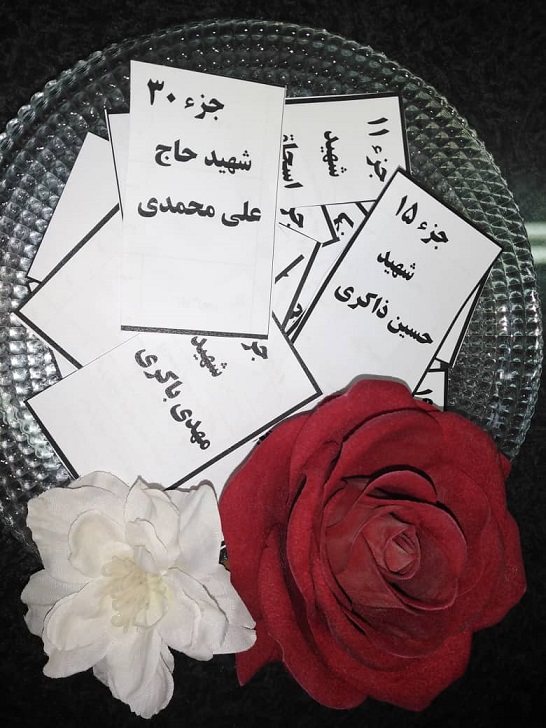 جزء ۳۰
شهید حاج
علی محمدی
جزء ۱۱
شهید
جزء ۱۵
شهید
حسین ذاکری
شهید
مهدی باکری